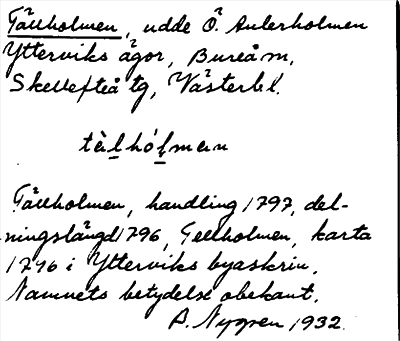 Tällholmen, udde Ö. Anlerholmen
Ytterviks ägor, Bureå m,
Skellefteå tg, Västerb l.
tàlhólman
Tällholmen, handling 1797, del-
ningslängd 1796, Tellholmen, karta
1746 i Ytterviks byaskrin.
Namnets betydelse obekant.
B. Nygren 1932.